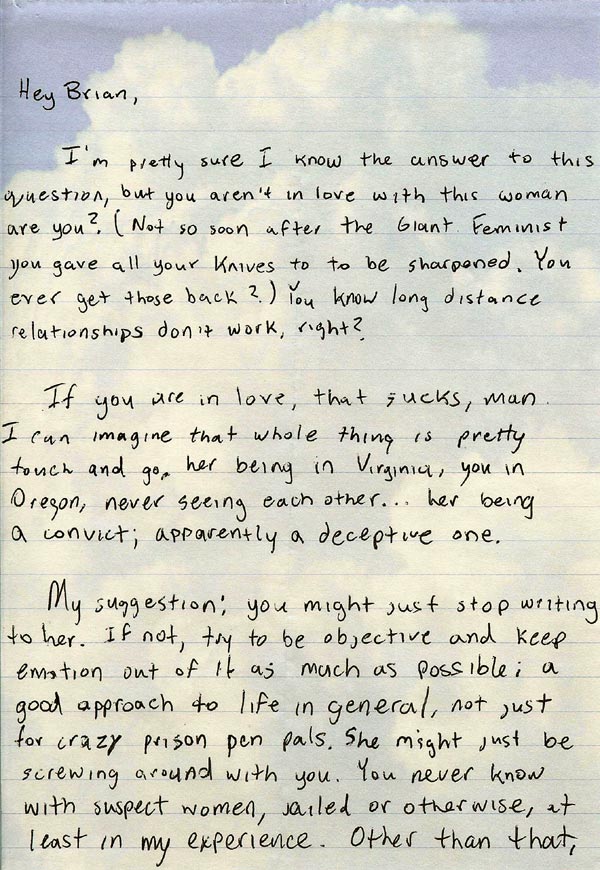 Hey Brian,
I'm pretty sure I know the answer to this
question, but you aren't in love with this woman
are you? (Not so soon after the Giant Feminist
you gave all your knives to to be sharpened. You
ever get those back?) You know long distance
relationships don't work, right?
If you are in love, that sucks, man.
I can imagine that whole thing is pretty
touch and go, her being in Virginia, you in
Oregon, never seeing each other... her being
a convict; apparently a deceptive one.
My suggestion; you might just stop writing
to her. If not, try to be objective and keep
emotion out of it as much as possible; a
good approach to life in general, not just
for crazy prison pen pals. She might just be
screwing around with you. You never know
with suspect women, jailed or otherwise, at
least in my experience. Other than that,